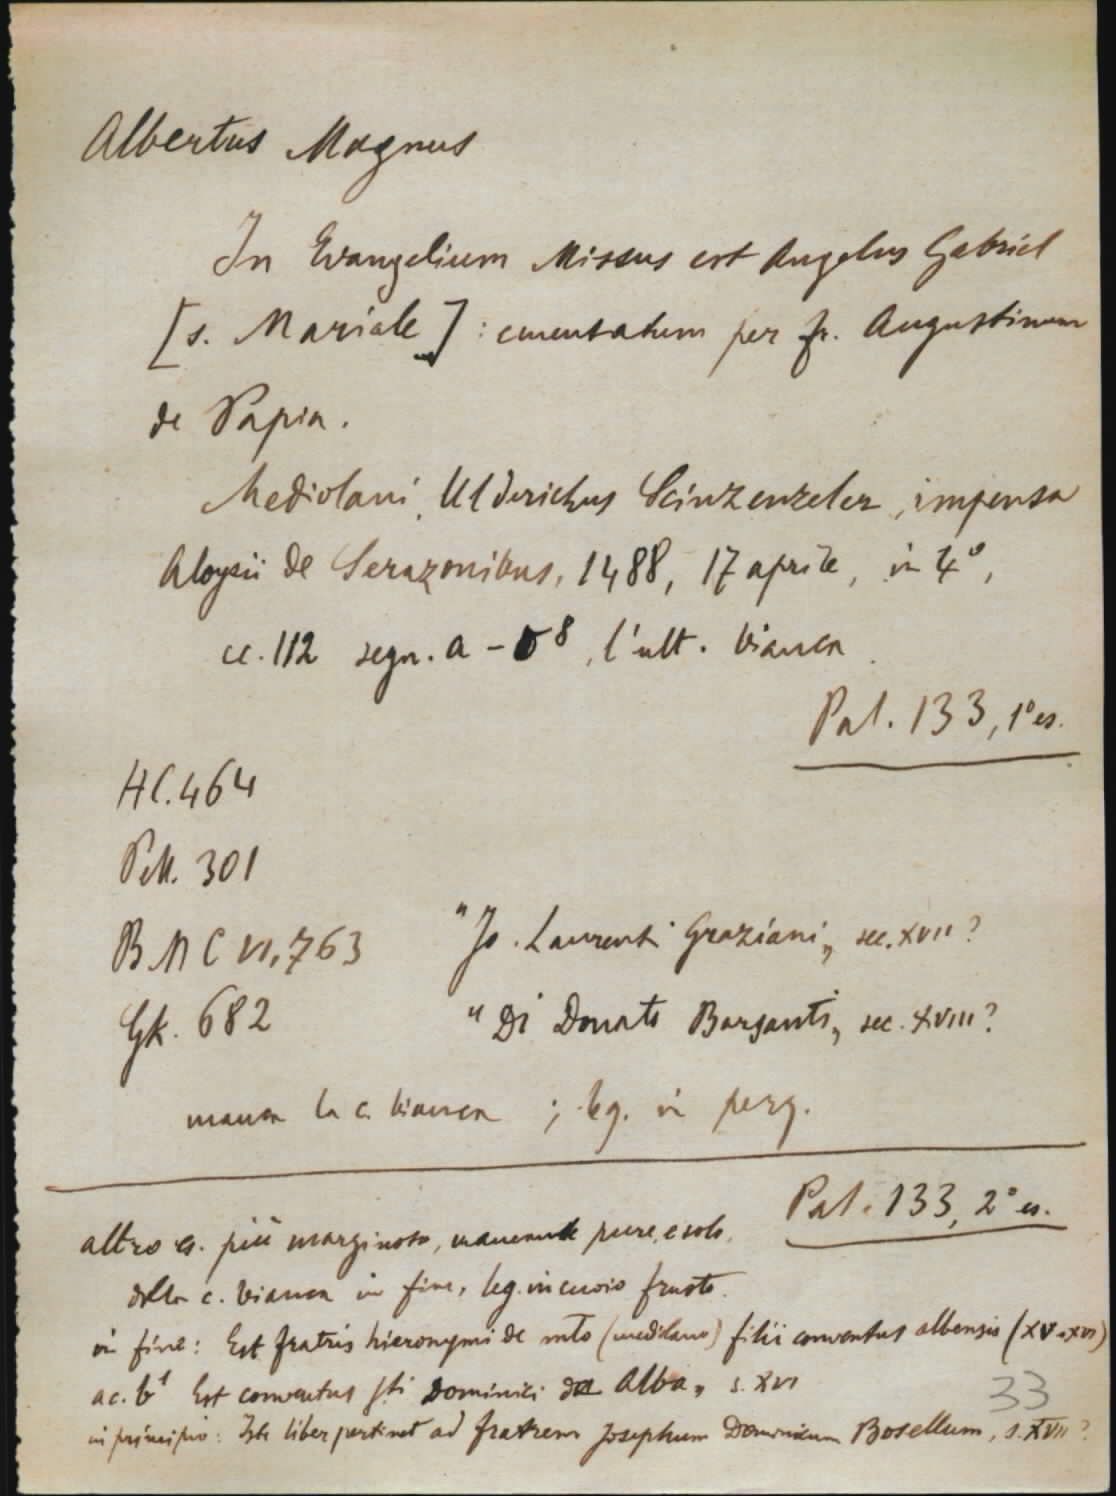 Albertus Magnus
In Evangelium Missus est Angelus Gabriel
[s. Mariale] : emendatum per fr. Augustinum
de Papia.
Mediolani, Uldericus Scinzenzeler, impensa
Aloysii de Serazonibus, 1488, 17 aprile, in 4°,
cc. 112 segn. a - o8, l'ult. bianca
Pal. 133, 1° es.
HC. 464
Pell. 301
BMC VI, 763
GK. 682
"Jo. Laurenti Graziani", sec. XVII?
"Di Donato Barsanti", sec. XVIII?
manca la c. bianca ; leg. in perg.
Pal. 133, 2° es.
altro es. più marginoso, mancante pure, e solo,
della c. bianca in fine, leg. in cuoio frusto.
in fine: Est fratris hieronymi de mlo (mediolano) filii conventus albensis (XV-XVI)
a c. b1 Est conventus Sti Dominici de Alba, s. XVI
in principio: Iste liber pertinet ad fratrem Josephum Dominicum Bosellum, s. XVII?
33